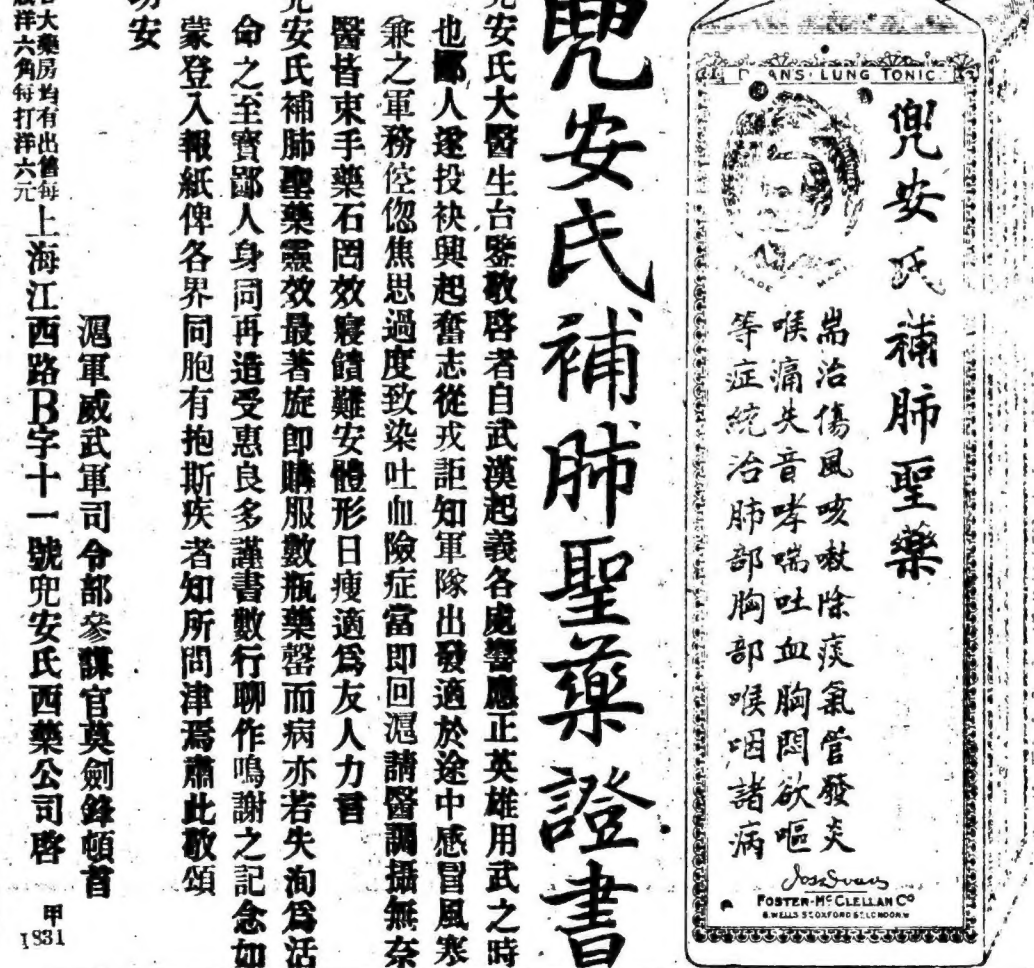 D AN'S · LUNG TONIC
兜安氏補肺聖藥
耑治傷風咳嗽除痰氣管發炎
喉痛失音哮喘吐血胸悶欲嘔
等症統治肺部胸部喉咽諸病
FOSTER-McCLELLAN Co
8, WELLS ST OXFORD ST, LONDON.W
兜安氏補肺聖藥證書
兜安氏大醫生台鑒敬啓者自武漢起義各處響應正英雄用武之時
也鄙人遂投袂興起奮志從戎詎知軍隊出發適於途中感冒風寒
兼之軍務倥偬焦思過度致染吐血險症當即回滬請醫調攝無奈
醫皆束手藥石罔效寢饋難安體形日瘦適爲友人力言
兜安氏補肺聖藥靈效最著旋即購服數瓶藥罄而病亦若失洵爲活
命之至寶鄙人身同再造受惠良多謹書數行聊作鳴謝之記念如
蒙登入報紙俾各界同胞有抱斯疾者知所問津焉肅此敬頌
安
滬軍威武軍司令部參謀官莫劍鋒頓首
各大藥房均有出售每
洋六角每打洋六元
上海江西路B字十一號兜安氏西藥公司啓
甲
1831